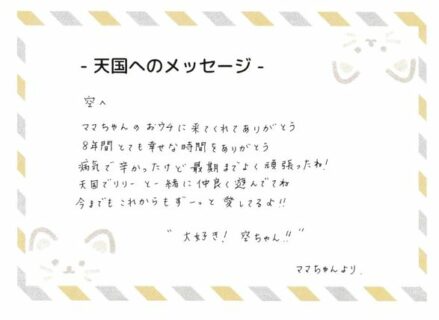 - 天国へのメッセージ -
空へ
ママちゃんのおウチに来てくれてありがとう
8年間とても幸せな時間をありがとう
病気で辛かったけど最期までよく頑張ったね!
天国でリリーと一緒に仲良く遊んでてね
今までもこれからもずーっと愛してるよ!!
"大好き! 空ちゃん!!"
ママちゃんより.